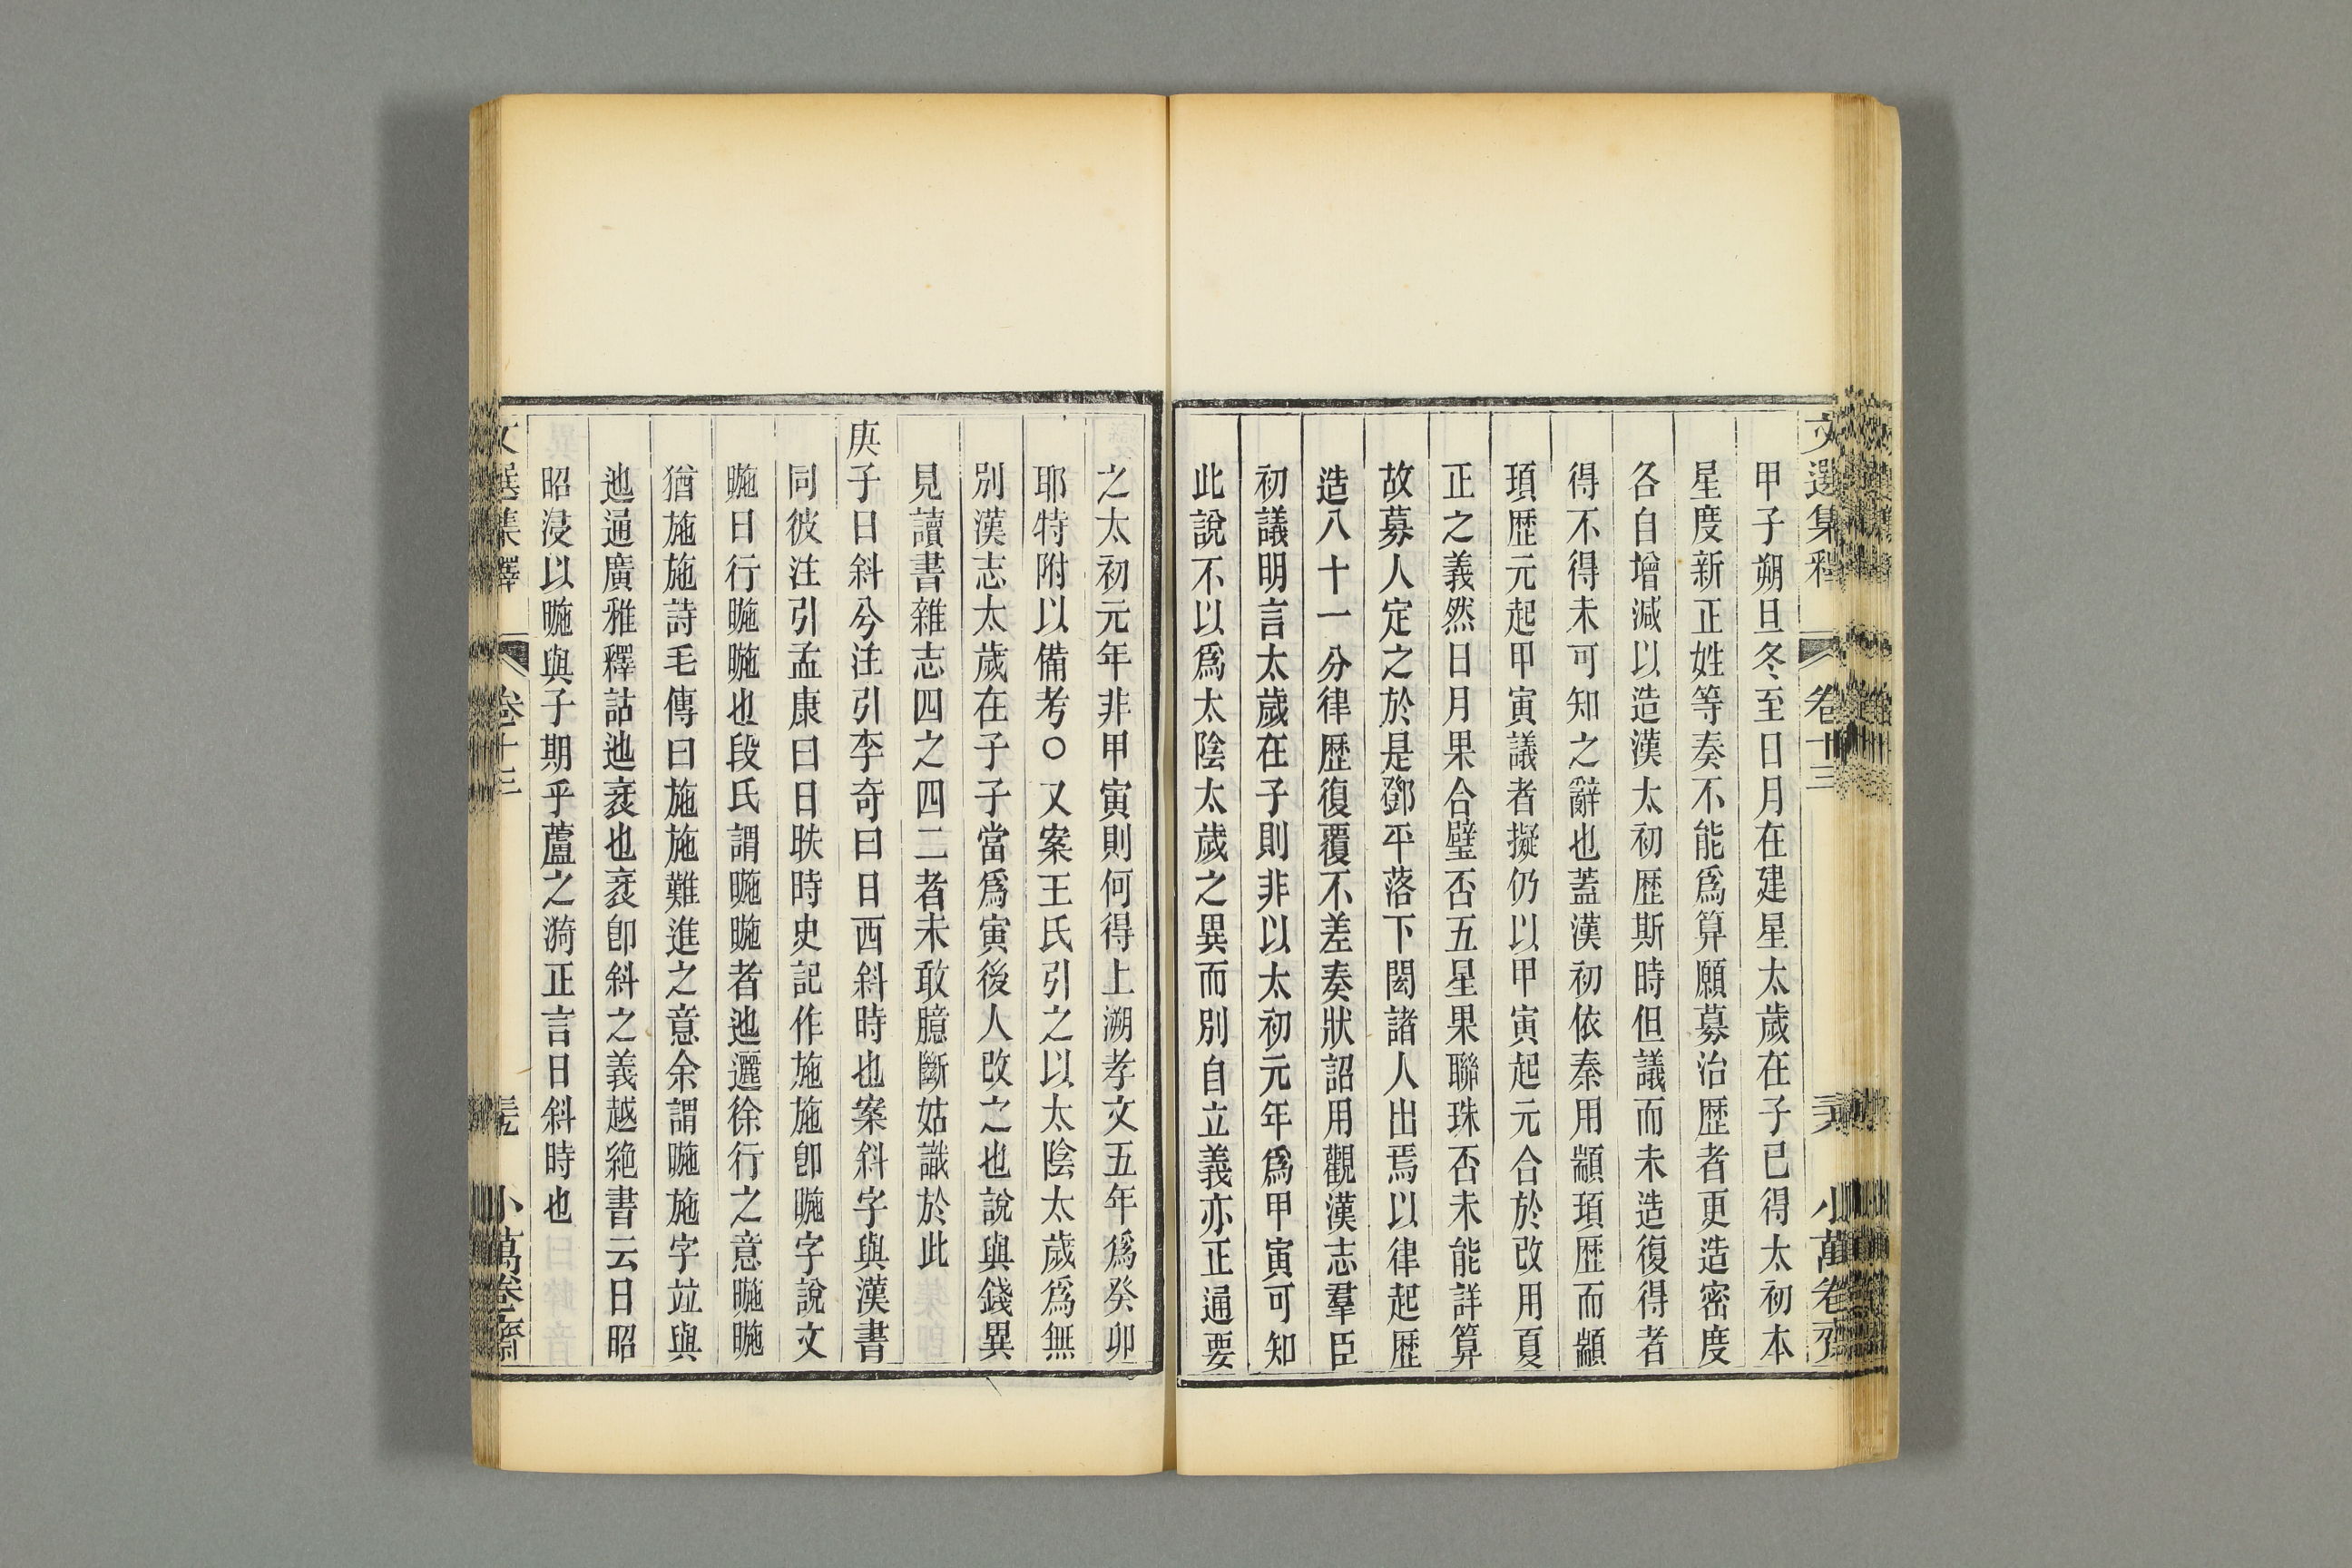 文選集釋 卷十三 小萬卷齋
甲子朔旦冬至日月在建星太歲在子已得太初本
星度新正姓等奏不能爲算願募治歷者更造密度
各自增減以造漢太初歷斯時但議而未造復得者
得不得未可知之辭也蓋漢初依秦用顓頊歷而顓
頊歷元起甲寅議者擬仍以甲寅起元合於改用夏
正之義然日月果合璧否五星果聯珠否未能詳算
故募人定之於是鄧平落下閎諸人出焉以律起歷
造八十一分律歷復覆不差奏狀詔用觀漢志羣臣
初議明言太歲在子則非以太初元年爲甲寅可知
此說不以爲太陰太歲之異而別自立義亦正通要
之太初元年非甲寅則何得上溯孝文五年爲癸卯
耶特附以備考○又案王氏引之以太陰太歲爲無
別漢志太歲在子子當爲寅後人改之也說與錢異
見讀書雜志四之四二者未敢臆斷姑識於此
庚子日斜兮注引李奇曰日西斜時也案斜字與漢書
同彼注引孟康曰日昳時史記作施施卽暆字說文
暆日行暆暆也段氏謂暆暆者迆邐徐行之意暆暆
猶施施詩毛傳曰施施難進之意余謂暆施字竝與
迆通廣雅釋詁迆衺也衺卽斜之義越絶書云日昭
昭浸以暆與子期乎蘆之漪正言日斜時也
文選集釋 卷十三 小萬卷齋